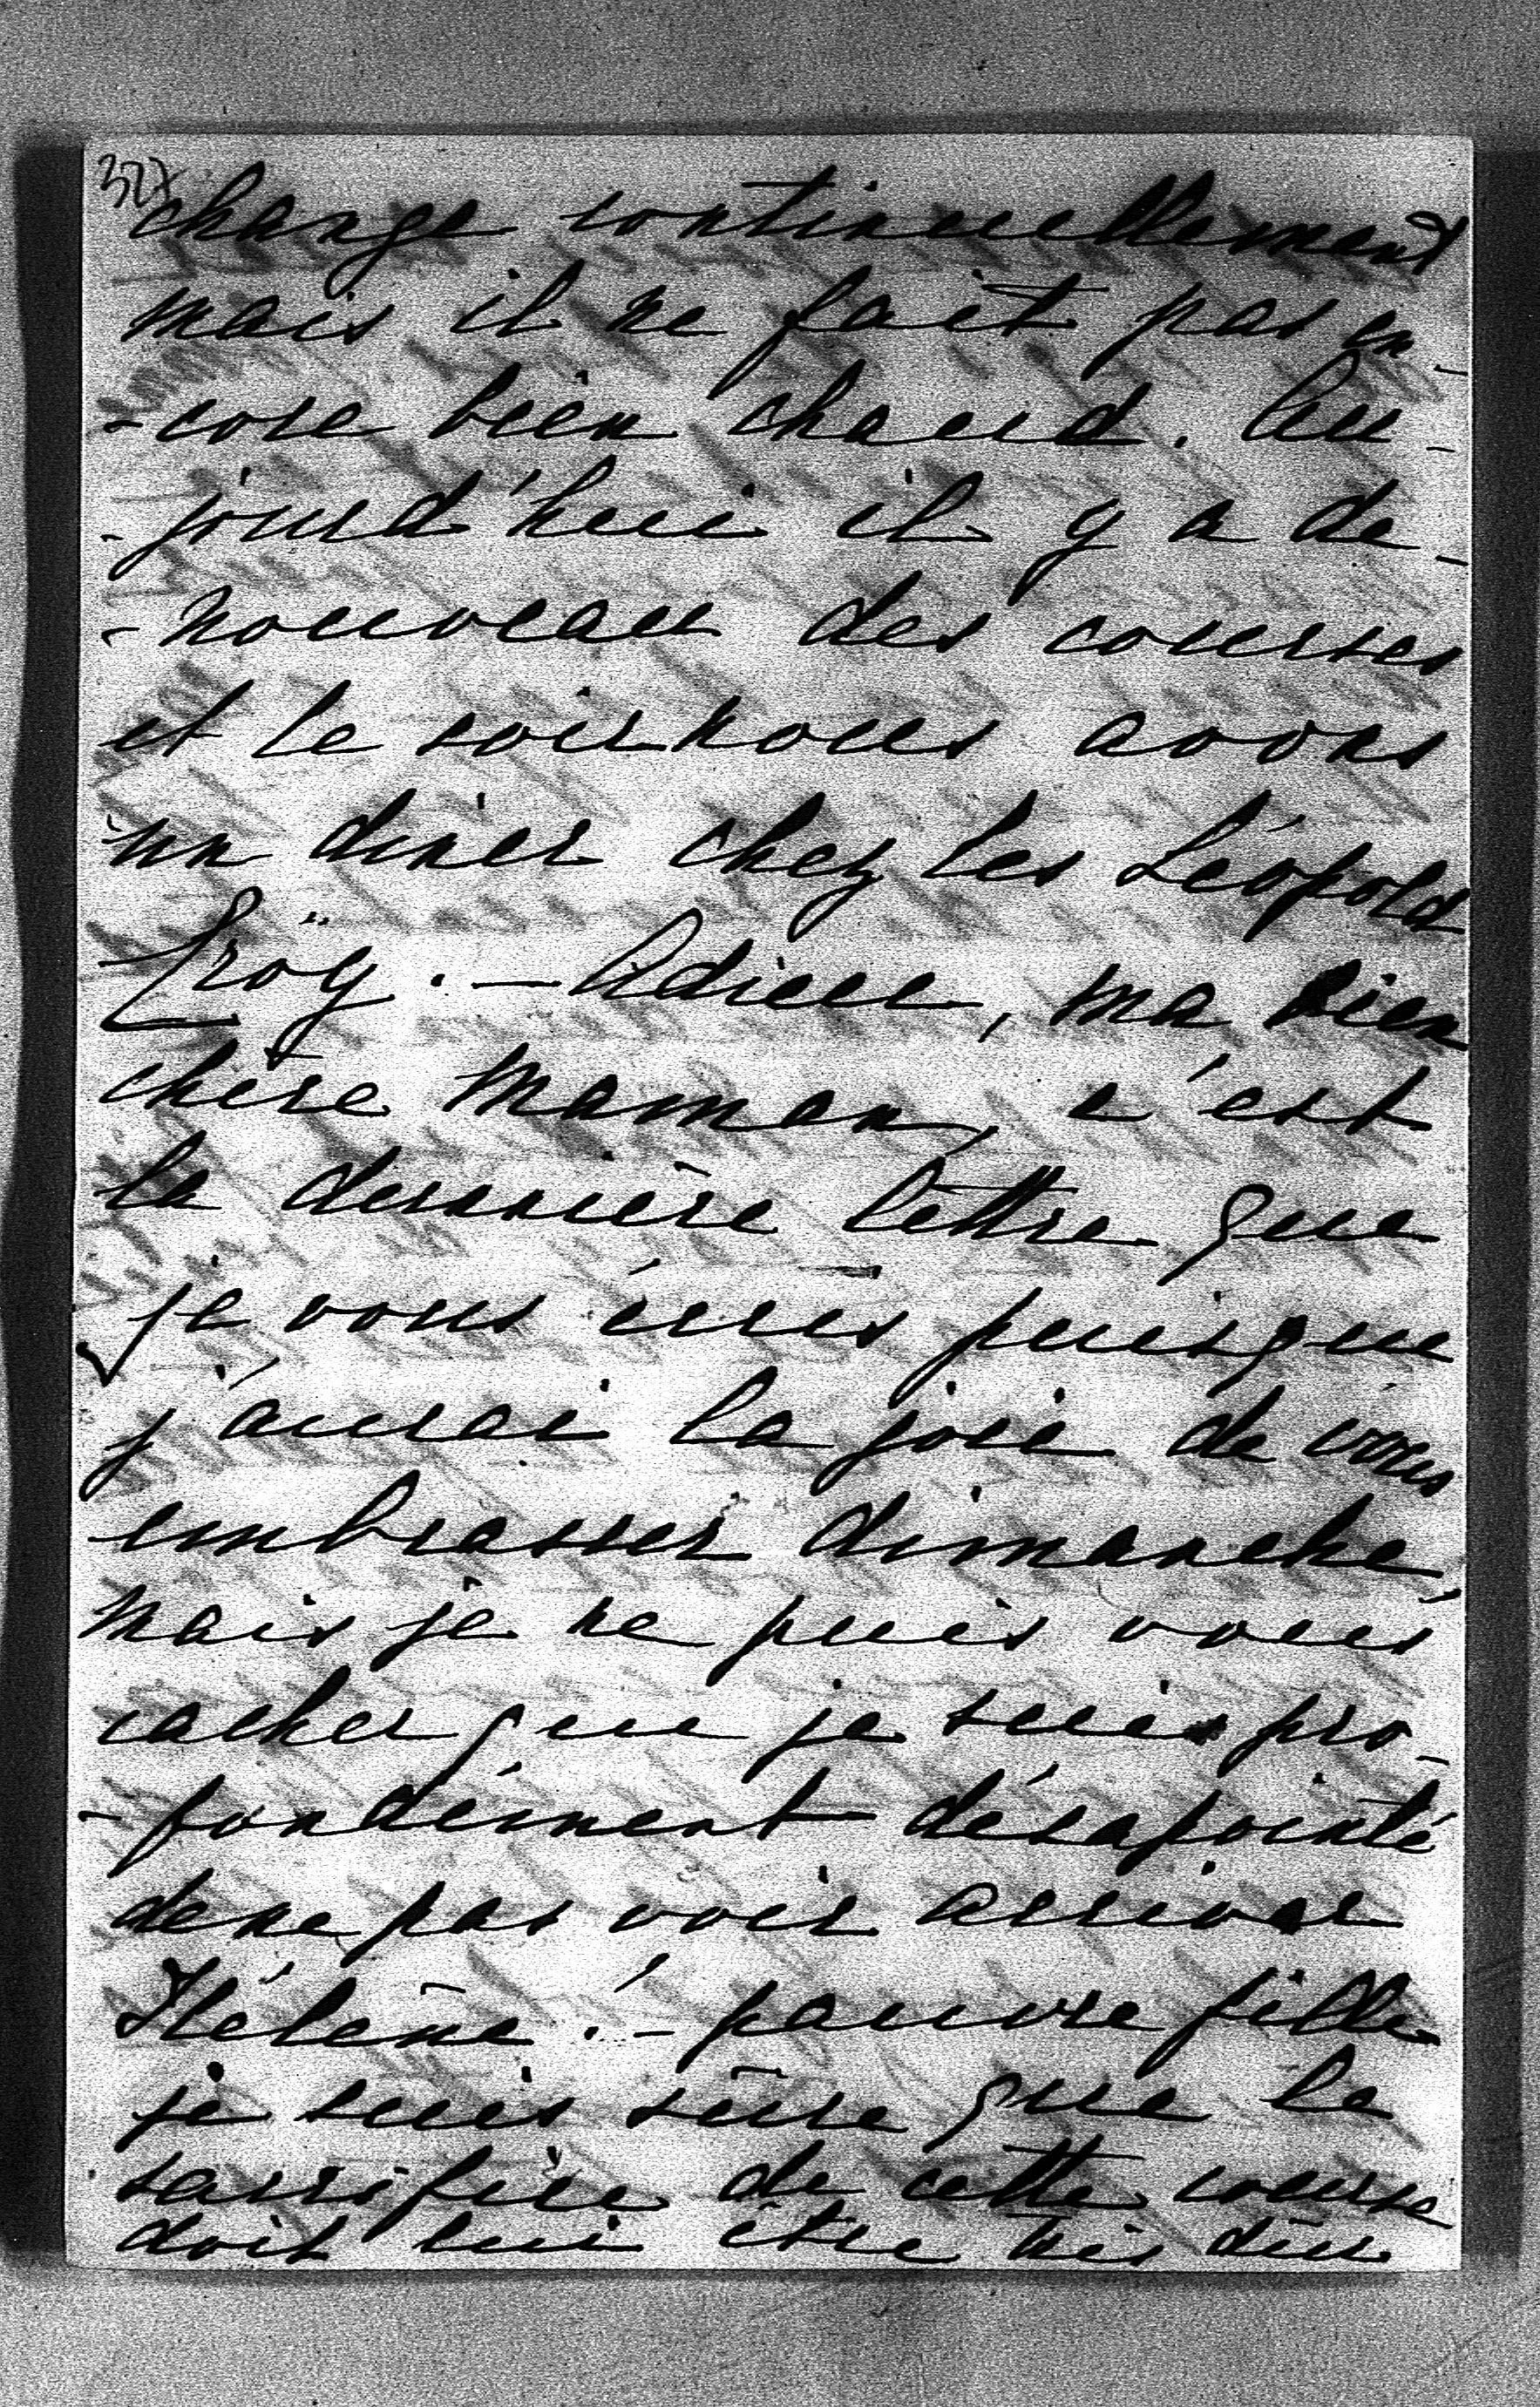 327
change continuellement
mais il ne fait pas en-
-core bien chaud. Au-
-jourd'hui il y a de-
-nouveau des courses
et le soir nous avons
un diner chez les Léopold
Croÿ. — Adieu, ma bien
chère Maman, c'est
la dernière lettre que
je vous écris puisque
j'aurai la joie de vous
embrasser dimanche,
mais je ne puis vous
cacher que je suis pro-
-fondément désapointé
de ne pas voir arriver
Hélène. — pauvre fille
je suis sûre que le
sacrifice de cette course
doit lui être très dur